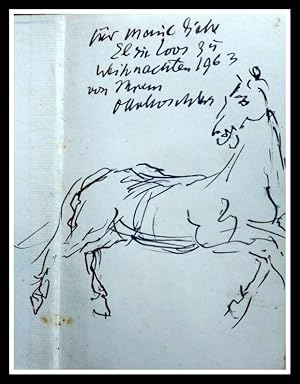 Für meine liebe
Elsie Loos zu
Weihnachten 1963
von Ihrem
OKokoschka